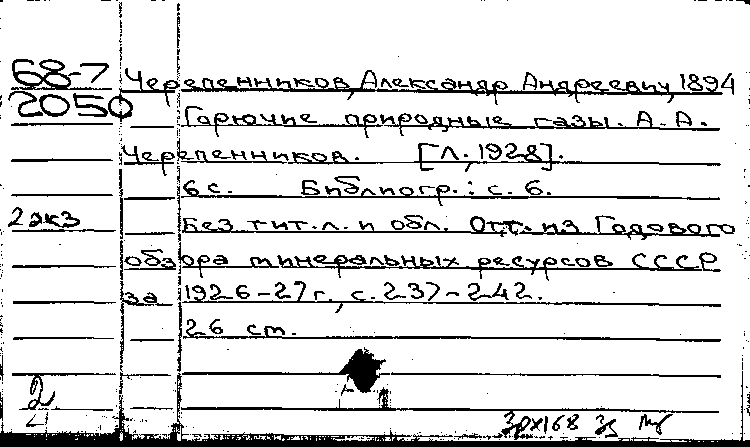 68-7 Черепенников, Александр Андреевич, 1894
2050 Горючие природные газы. А. А.
Черепенников. [Л., 1928].
6 с. Библиогр.: с. 6.
2 экз Без тит. л. и обл. Отт. из Годового
обзора минеральных ресурсов СССР
за 1926-27 г., с. 237-242.
26 см.
2
4